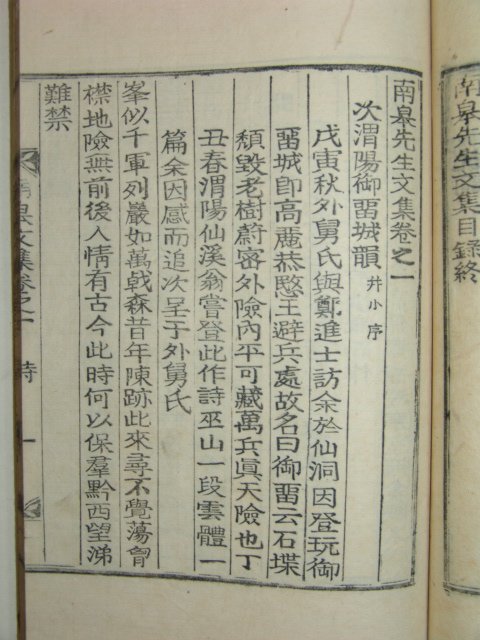 南皐先生文集目錄終
南皐先生文集卷之一
次渭陽御畱城韻 幷小序
戊寅秋外舅氏與鄭進士訪余於仙洞因登玩御
畱城卽高麗恭愍王避兵處故名曰御畱云石堞
頹毁老樹蔚密外險內平可藏萬兵眞天險也丁
丑春渭陽仙溪翁嘗登此作詩巫山一段雲體一
篇余因感而追次呈于外舅氏
峯似千軍列巖如萬戟森昔年陳跡此來尋不覺蕩胷
襟地險無前後人情有古今此時何以保羣黔西望涕
難禁
南皐文集卷之一 詩 一